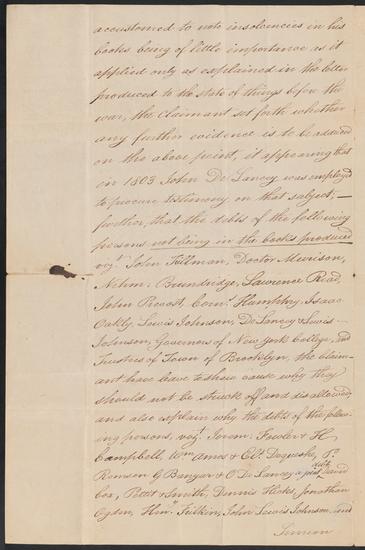 accustomed to note insolvencies in his
books being of little importance as it
applied only as explained in the letter
produced to the state of things before the
war, the claimant set forth whether
any further evidence is to be adduced
on the above point, it appearing that
in 1803 John De Lancey was employed
to procure testimony on that subject;—
further, that the debts of the following
persons not being in the books produced
vizt. John Tillman, Doctor Murison,
Nehm. Brundridge, Lawrence Read,
John Revost, Corns. Humphry, Isaac
Oakly, Lewis Johnson, De Lancey & Lewis
Johnson, Governors of New York College, and
Trustees of Town of Brooklyn, the claim-
ant have leave to shew cause why they
should not be struck off and disallowed
and also explain why the debts of the follow-
ing persons, vizt. Jerem. Fowler & H
Campbell, Wm Amos &
Remsen G Banyar & O De Lancey a joint debt David
Cox, Pettit & Smith, Dennis Hicks, Jonathan
Ogden, Filkin, John Lewis Johnson and